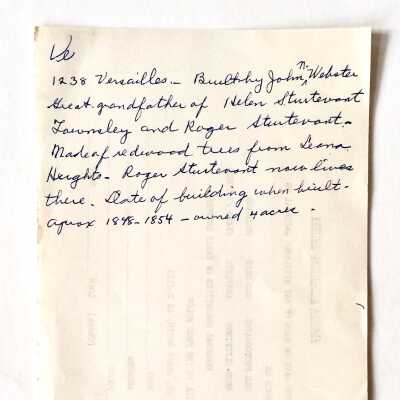 Ve
1238 Versailles - Built by John N. Webster
Great grandfather of Helen Sturtevant
Townsley and Roger Sturtevant -
Made of redwood trees from Leona
Heights - Roger Sturtevant now lives
there. Date of building when built -
aprox 1848-1854 - owned 4 acres.